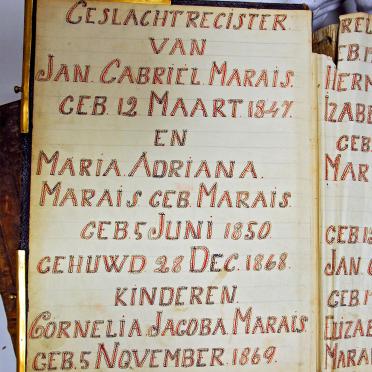 GESLACHTREGISTER.
VAN
JAN. GABRIËL MARAIS.
GEB. 12 MAART. 1847.
EN
MARIA. ADRIANA.
MARAIS GEB. MARAIS.
GEB 5 JUNI 1850
GEHUWD 28 DEC. 1868.
KINDEREN.
CORNELIA JACOBA MARAIS.
GEB. 5 NOVEMBER. 1869.
GEB. 1
HERM
IZABE
GEB.
MAR
GEB. 12
JAN. G
GEB. 1
ELIZAB
MARAI